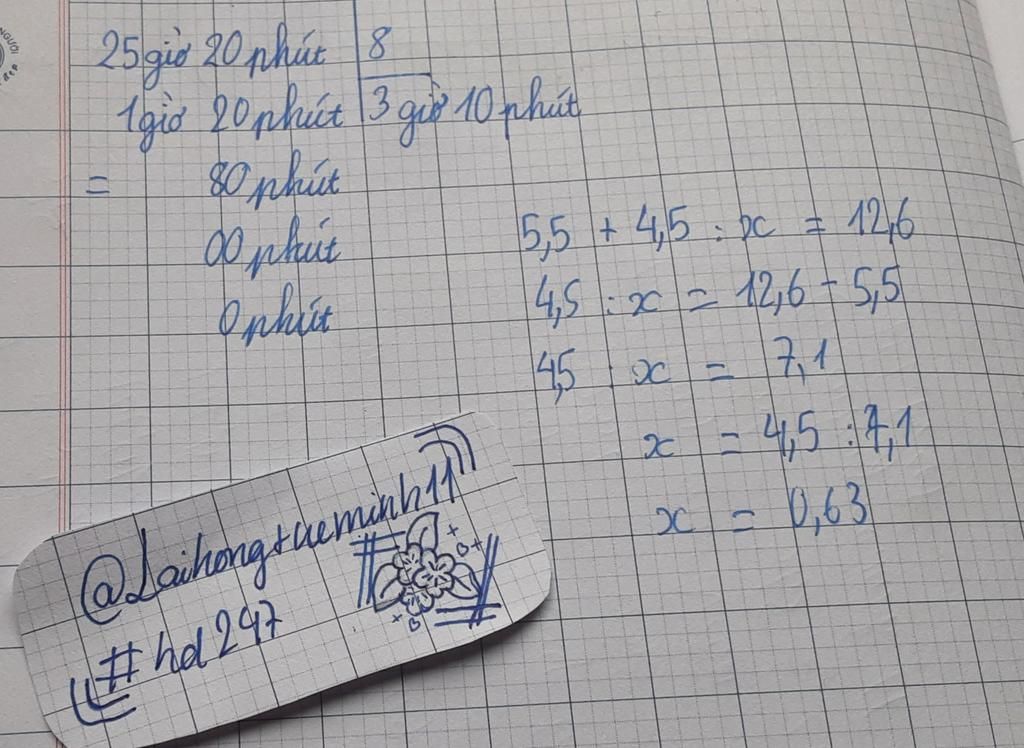 25 giờ 20 phút 8
1 giờ 20 phút 3 giờ 10 phút
= 80 phút
00 phút
0 phút
5,5 + 4,5 : x = 12,6
4,5 : x = 12,6 - 5,5
4,5 : x = 7,1
x = 4,5 : 7,1
x = 0,63
@Laihongtueminh11
#hd247